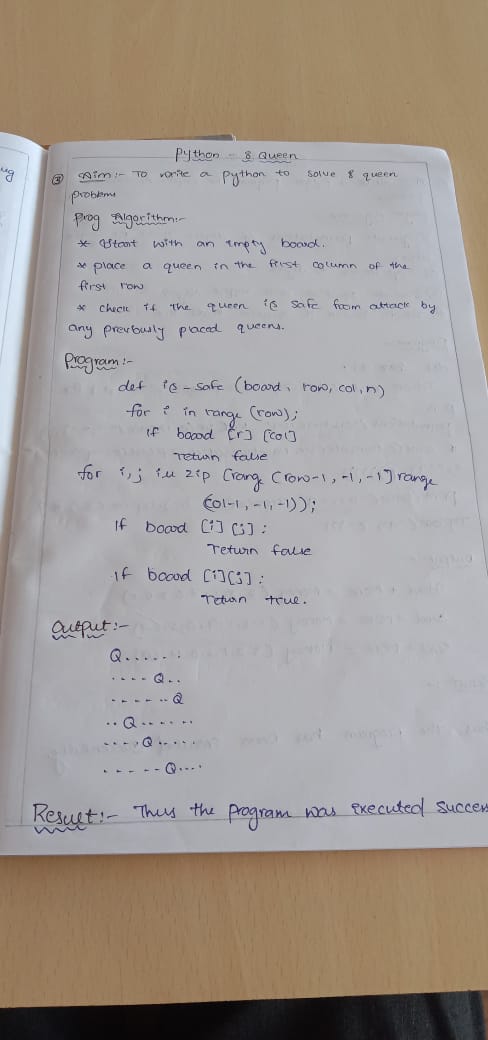 ug
Python - 8 Queen
③ Aim:- To write a python to solve 8 queen
problems
Prog Algorithm:-
* Start with an empty board.
* place a queen in the first column of the
first row
* check if the queen is safe from attack by
any previously placed queens.
Program:-
def is-safe (board, row, col, n)
for i in range (row);
if board [r] [col]
return false
for i, j in zip (range (row-1, -1, -1] range
(col-1, -1, -1));
If board [i] [j] :
return false
if board [i][j] :
return true.
Output:-
Q.......
.... Q..
...... Q
.. Q......
.... Q.....
...... Q....
Result:- Thus the program was executed succes